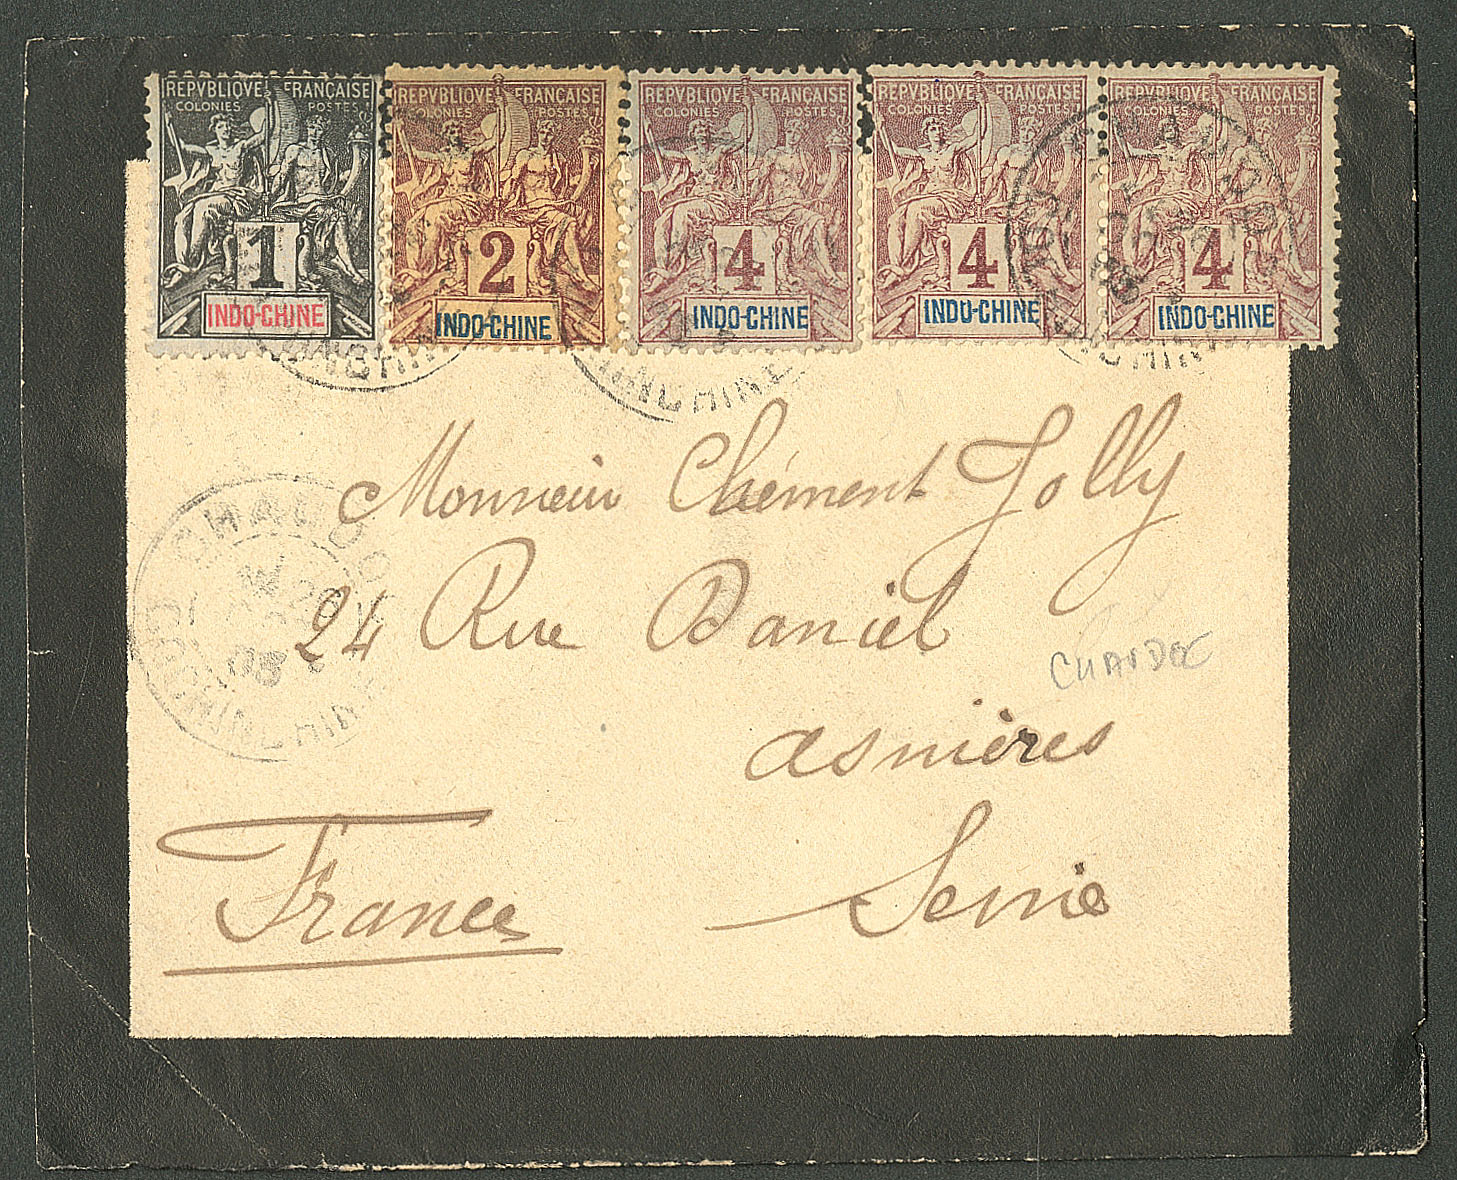 REPVBLIQVE FRANÇAISE
COLONIES POSTES
1
INDO-CHINE
REPVBLIQVE FRANÇAISE
COLONIES POSTES
2
INDO-CHINE
REPVBLIQVE FRANÇAISE
COLONIES POSTES
4
INDO-CHINE
REPVBLIQVE FRANÇAISE
COLONIES POSTES
4
INDO-CHINE
REPVBLIQVE FRANÇAISE
COLONIES POSTES
4
INDO-CHINE
Monsieur Clément Jolly
24 Rue Daniel
CHAUDOC
asnières
Seine
France
CHAUDOC
03
COCHINCHINE